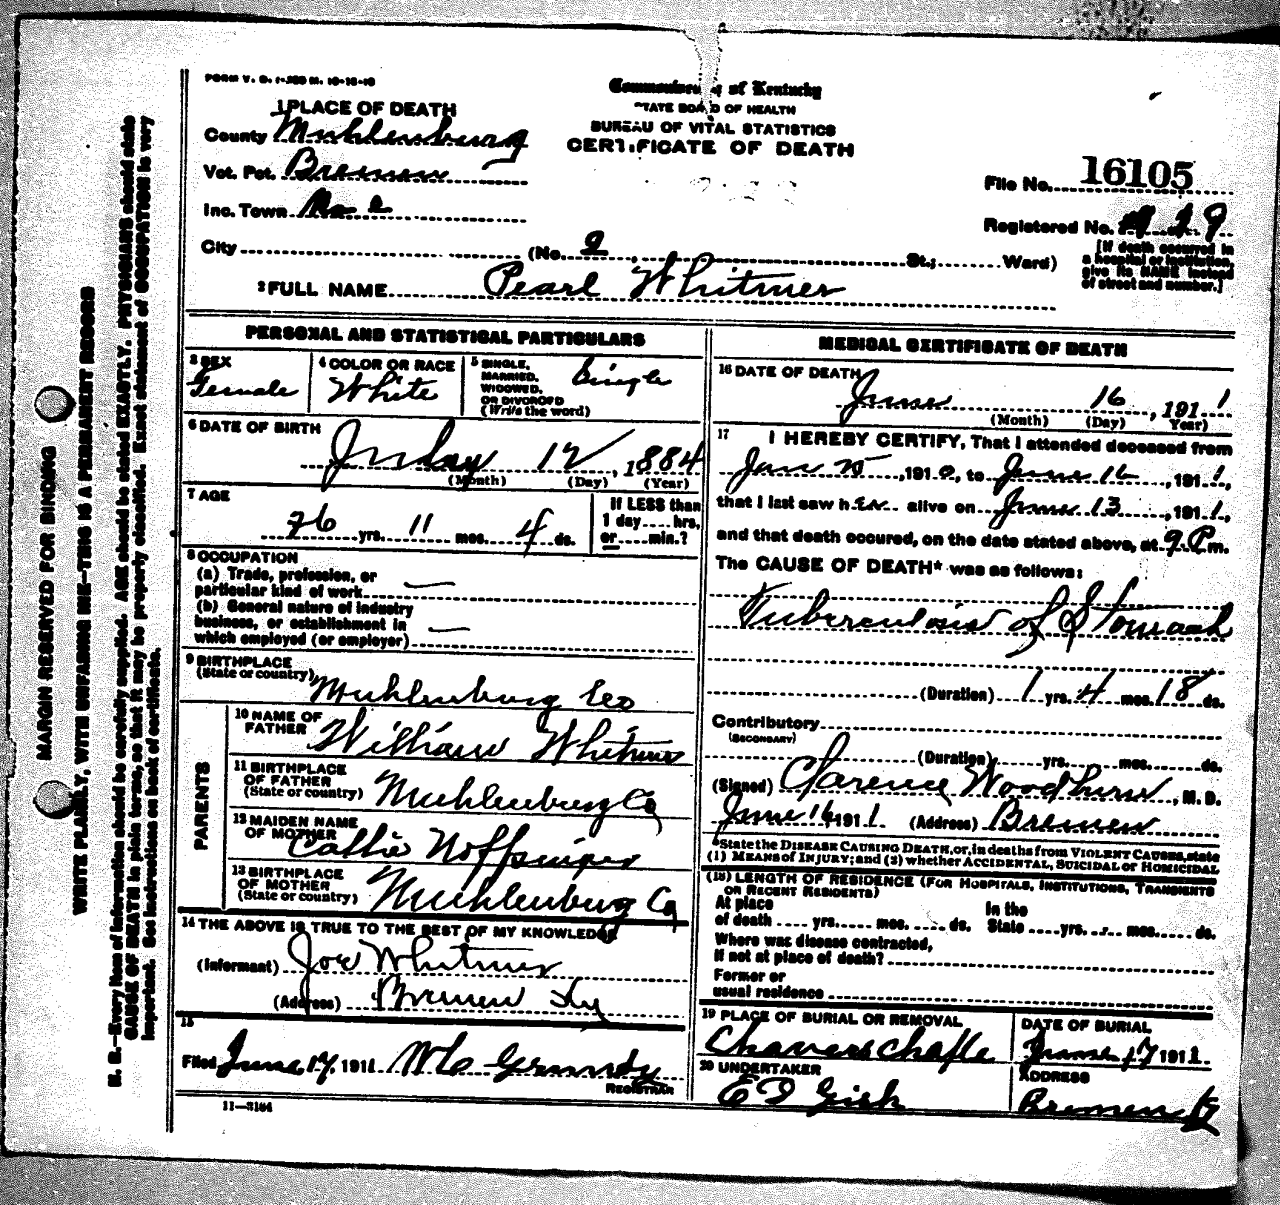 FORM V. S. 1-25D M. 10-15-10
Commonwealth of Kentucky
STATE BOARD OF HEALTH
BUREAU OF VITAL STATISTICS
CERTIFICATE OF DEATH
1 PLACE OF DEATH
County Muhlenburg
Vot. Pct. Bremen
Inc. Town
City (No. 2 St.; Ward)
File No. 16105
Registered No. 19
[If death occurred in
a hospital or institution,
give its NAME instead
of street and number.]
2 FULL NAME Pearl Whitmer
PERSONAL AND STATISTICAL PARTICULARS
3 SEX
Female
4 COLOR OR RACE
White
5 SINGLE,
MARRIED,
WIDOWED,
OR DIVORCED
(Write the word)
Single
6 DATE OF BIRTH
July 12, 1884
(Month) (Day) (Year)
7 AGE
26 yrs. 11 mos. 4 ds.
If LESS than
1 day....hrs.
or....min.?
8 OCCUPATION
(a) Trade, profession, or
particular kind of work —
(b) General nature of industry
business, or establishment in
which employed (or employer) —
9 BIRTHPLACE
(State or country) Muhlenburg Co
PARENTS
10 NAME OF
FATHER William Whitmer
11 BIRTHPLACE
OF FATHER
(State or country) Muhlenburg Co
12 MAIDEN NAME
OF MOTHER Callie Noffsinger
13 BIRTHPLACE
OF MOTHER
(State or country) Muhlenburg Co
14 THE ABOVE IS TRUE TO THE BEST OF MY KNOWLEDGE
(Informant) Joe Whitmer
(Address) Bremen Ky
15
Filed June 17, 1911 REGISTRAR
11—3184
MEDICAL CERTIFICATE OF DEATH
16 DATE OF DEATH
June 16, 1911
(Month) (Day) Year)
17 I HEREBY CERTIFY, That I attended deceased from
Jan 25, 1910, to June 16, 1911,
that I last saw her alive on June 13, 1911,
and that death occured, on the date stated above, at 9 P.m.
The CAUSE OF DEATH* was as follows:
Tuberculosis of Stomach
(Duration) 1 yrs. 4 mos. 18 ds.
Contributory
(SECONDARY)
(Duration) yrs. mos. ds.
(Signed) Clarence Woodburn, M. D.
June 16 1911 (Address) Bremen
*State the DISEASE CAUSING DEATH, or, in deaths from VIOLENT CAUSES, state
(1) MEANS of INJURY; and (2) whether ACCIDENTAL, SUICIDAL or HOMICIDAL
(18) LENGTH OF RESIDENCE (FOR HOSPITALS, INSTITUTIONS, TRANSIENTS
OR RECENT RESIDENTS)
At place In the
of death .... yrs. .... mos. .... ds. State .... yrs. .... mos. .... ds.
Where was disease contracted,
If not at place of death?
Former or
usual residence
19 PLACE OF BURIAL OR REMOVAL
DATE OF BURIAL
June 17 1911
20 UNDERTAKER
E D Gish
ADDRESS
Bremen Ky
MARGIN RESERVED FOR BINDING
WRITE PLAINLY, WITH UNFADING INK—THIS IS A PERMANENT RECORD
N. B.—Every item of information should be carefully supplied. AGE should be stated EXACTLY. PHYSICIANS should state
CAUSE OF DEATH in plain terms, so that it may be properly classified. Exact statement of OCCUPATION is very
important. See instructions on back of certificate.